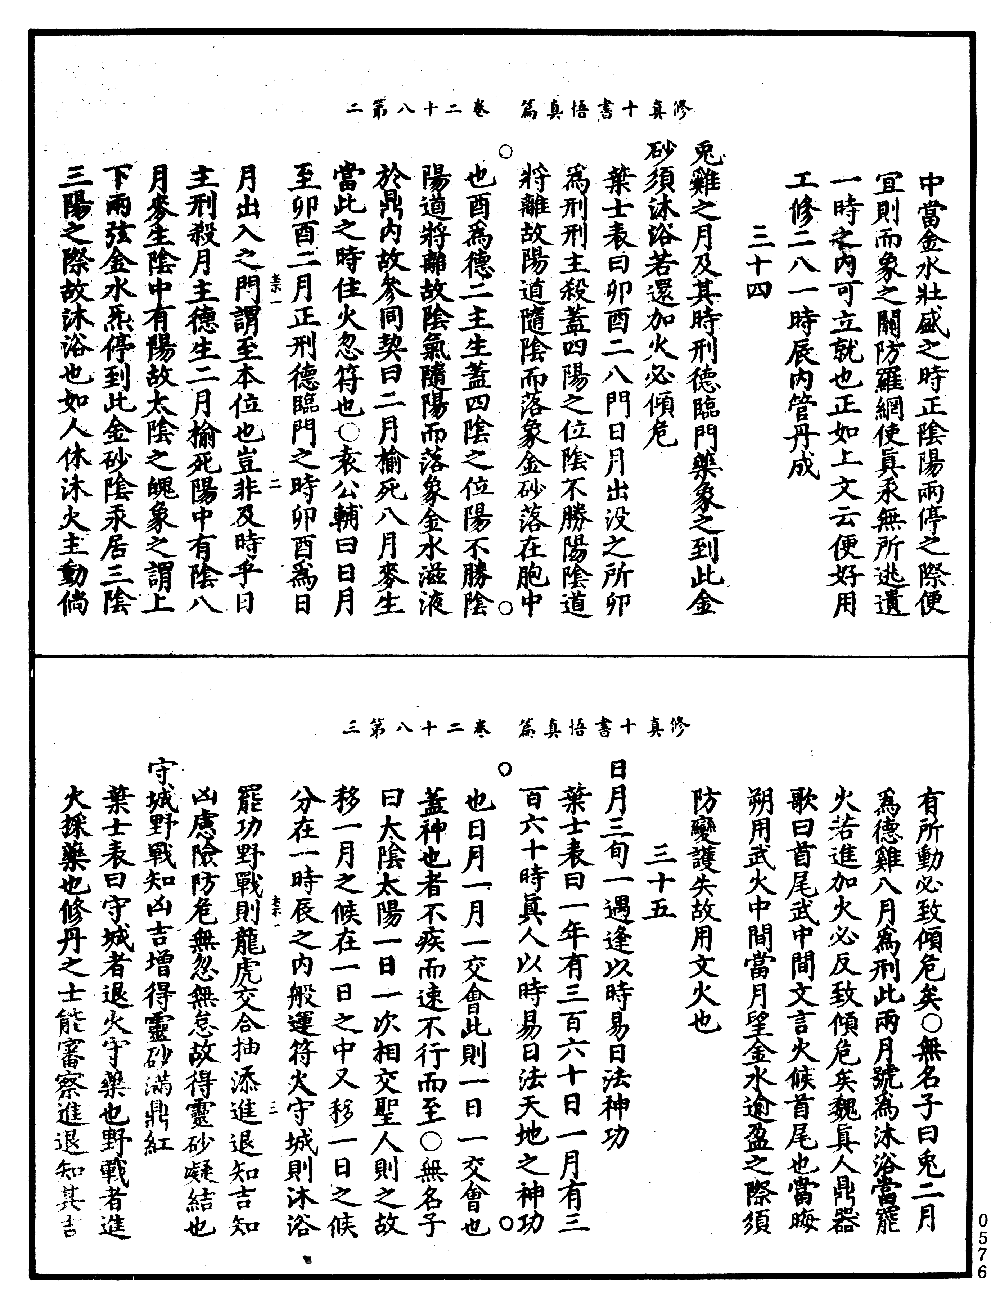 修真十書悟真篇　卷二十八第二
中當金水壯盛之時正陰陽兩停之際便
宜則而象之關防羅網使真汞無所逃遺
一時之內可立就也正如上文云便好用
工修二八一時辰內管丹成
三十四
兎雞之月及其時刑德臨門藥象之到此金
砂須沐浴若還加火必傾危
葉士表曰卯酉二八門日月出没之所卯
爲刑刑主殺蓋四陽之位陰不勝陽陰道
將離故陽道隨陰而落象金砂落在胞中
也酉爲德二主生蓋四陰之位陽不勝陰
陽道將離故陰氣隨陽而落象金水滋液
於鼎內故叅同契曰二月榆死八月麥生
當此之時住火忽符也○袁公輔曰日月
至卯酉二月正刑德臨門之時卯酉爲日
月出入之門謂至本位也豈非及時乎日
主刑殺月主德生二月榆死陽中有陰八
月麥生陰中有陽故太陰之魄象之謂上
下兩弦金水炁停到此金砂陰汞居三陰
三陽之際故沐浴也如人休沐火主動倘
修真十書悟真篇　卷二十八第三
有所動必致傾危矣○無名子曰兎二月
爲德雞八月爲刑此兩月號爲沐浴當罷
火若進加火必反致傾危矣魏真人鼎器
歌曰首尾武中間文言火候首尾也當晦
朔用武火中間當月望金水逾盈之際須
防變護失故用文火也
三十五
日月三旬一遇逢以時易日法神功
葉士表曰一年有三百六十日一月有三
百六十時真人以時易日法天地之神功
也日月一月一交會此則一日一交會也
蓋神也者不疾而速不行而至○無名子
曰太陰太陽一日一次相交聖人則之故
移一月之候在一日之中又移一日之候
分在一時辰之內般運符火守城則沐浴
罷功野戰則龍虎交合抽添進退知吉知
凶慮險防危無忽無怠故得靈砂凝結也
守城野戰知凶吉增得靈砂滿鼎紅
葉士表曰守城者退火守藥也野戰者進
火採藥也修丹之士能審察進退知其吉
0576